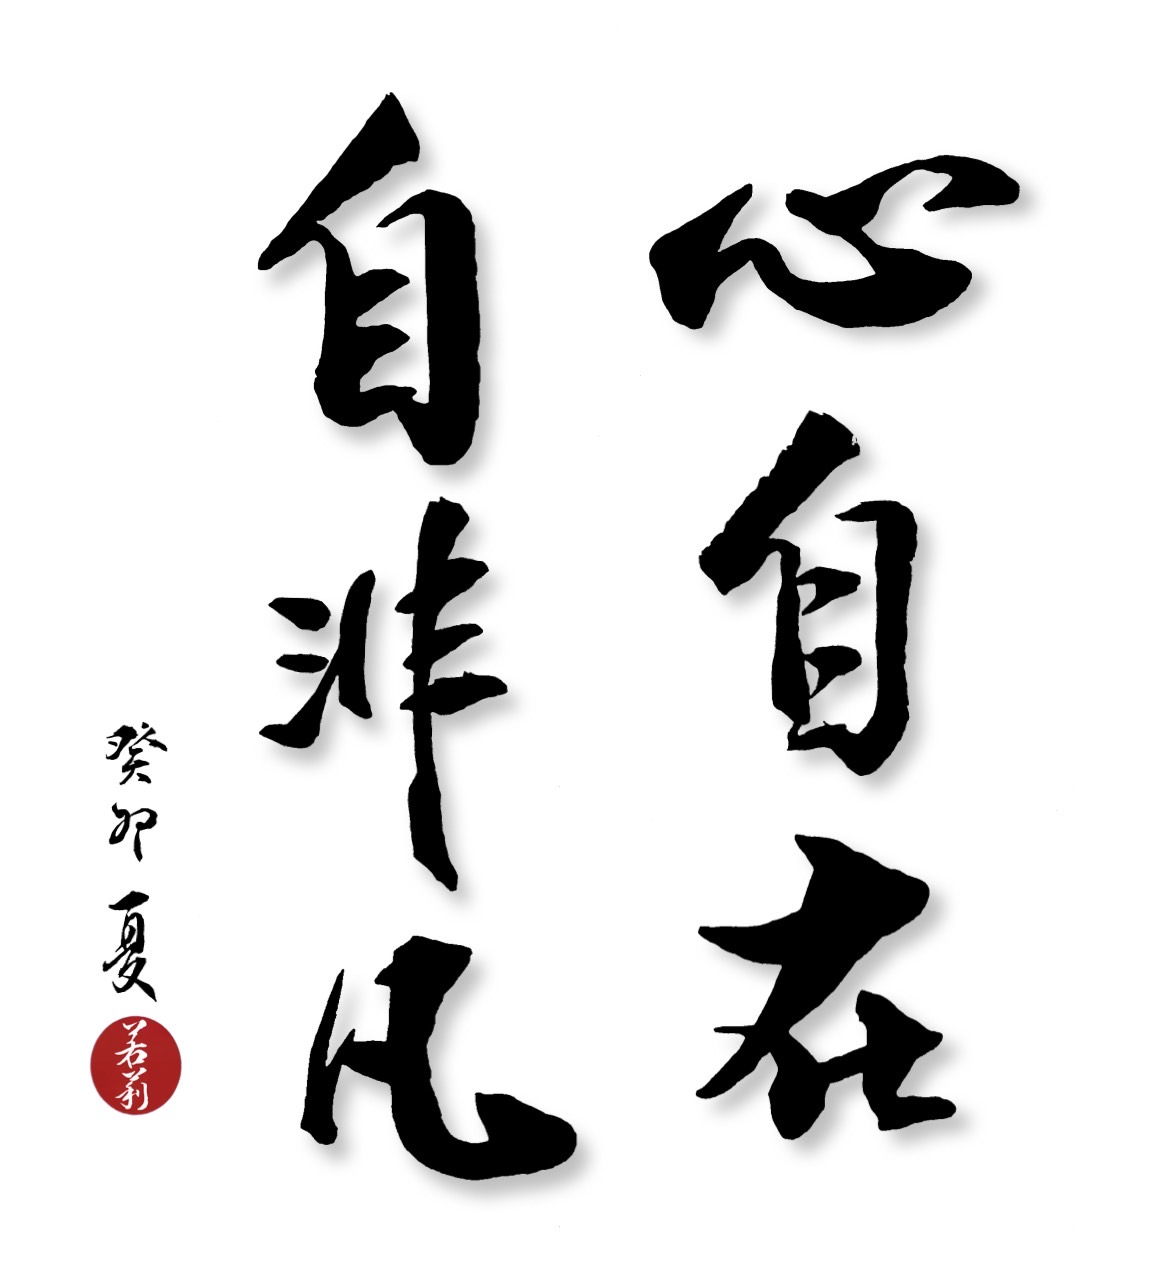 心自在
自非凡
癸卯夏
若莉